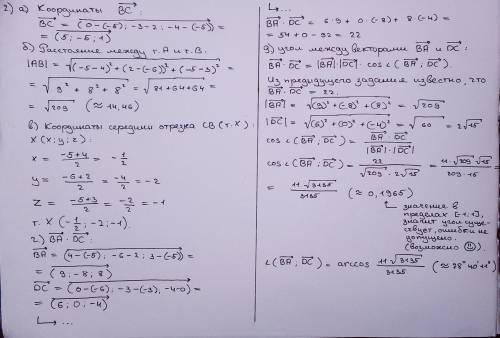 2) а) Координаты BC:
BC = (0-(-5); -3-2; -4-(-5)) =
= (5; -5; 1)
б) Расстояние между т.А и т.В.
|AB| = √((-5-4)² + (2-(-6))² + (-5-3)²) =
= √(9² + 8² + 8²) = √(81+64+64) =
= √209 (≈ 14,46)
в) Координаты середины отрезка CB (т. X):
X (x; y; z):
x = (-5+4)/2 = -1/2
y = (-6+2)/2 = -4/2 = -2
z = (-5+3)/2 = -2/2 = -1
т. X (-1/2; -2; -1).
г) BA · DC:
BA = (4-(-5); -6-2; 3-(-5)) =
= (9; -8; 8)
DC = (0-(-6); -3-(-3); -4-0) =
= (6; 0; -4)
↳ ...
↳ ...
BA · DC = 6·9 + 0·(-8) + 8·(-4) =
= 54 + 0 - 32 = 22
д) угол между векторами BA и DC:
BA · DC = |BA|·|DC| · cos∠(BA; DC).
Из предыдущего задания известно, что
BA · DC = 22.
|BA| = √((9)² + (-8)² + (8)²) = √209
|DC| = √((6)² + (0)² + (-4)²) = √60 = 2√15
cos∠(BA; DC) = BA · DC / |BA|·|DC|
cos∠(BA; DC) = 22/(√209 · 2√15) = 11·√209·√15/(209·15) =
= 11√3135/3135 (≈ 0,1965)
↳ значение в
пределах [-1; 1],
значит угол суще-
ствует, ошибки не
допущено.
(возможно)
∠(BA; DC) = arccos 11√3135/3135 (≈ 78°40'11'')